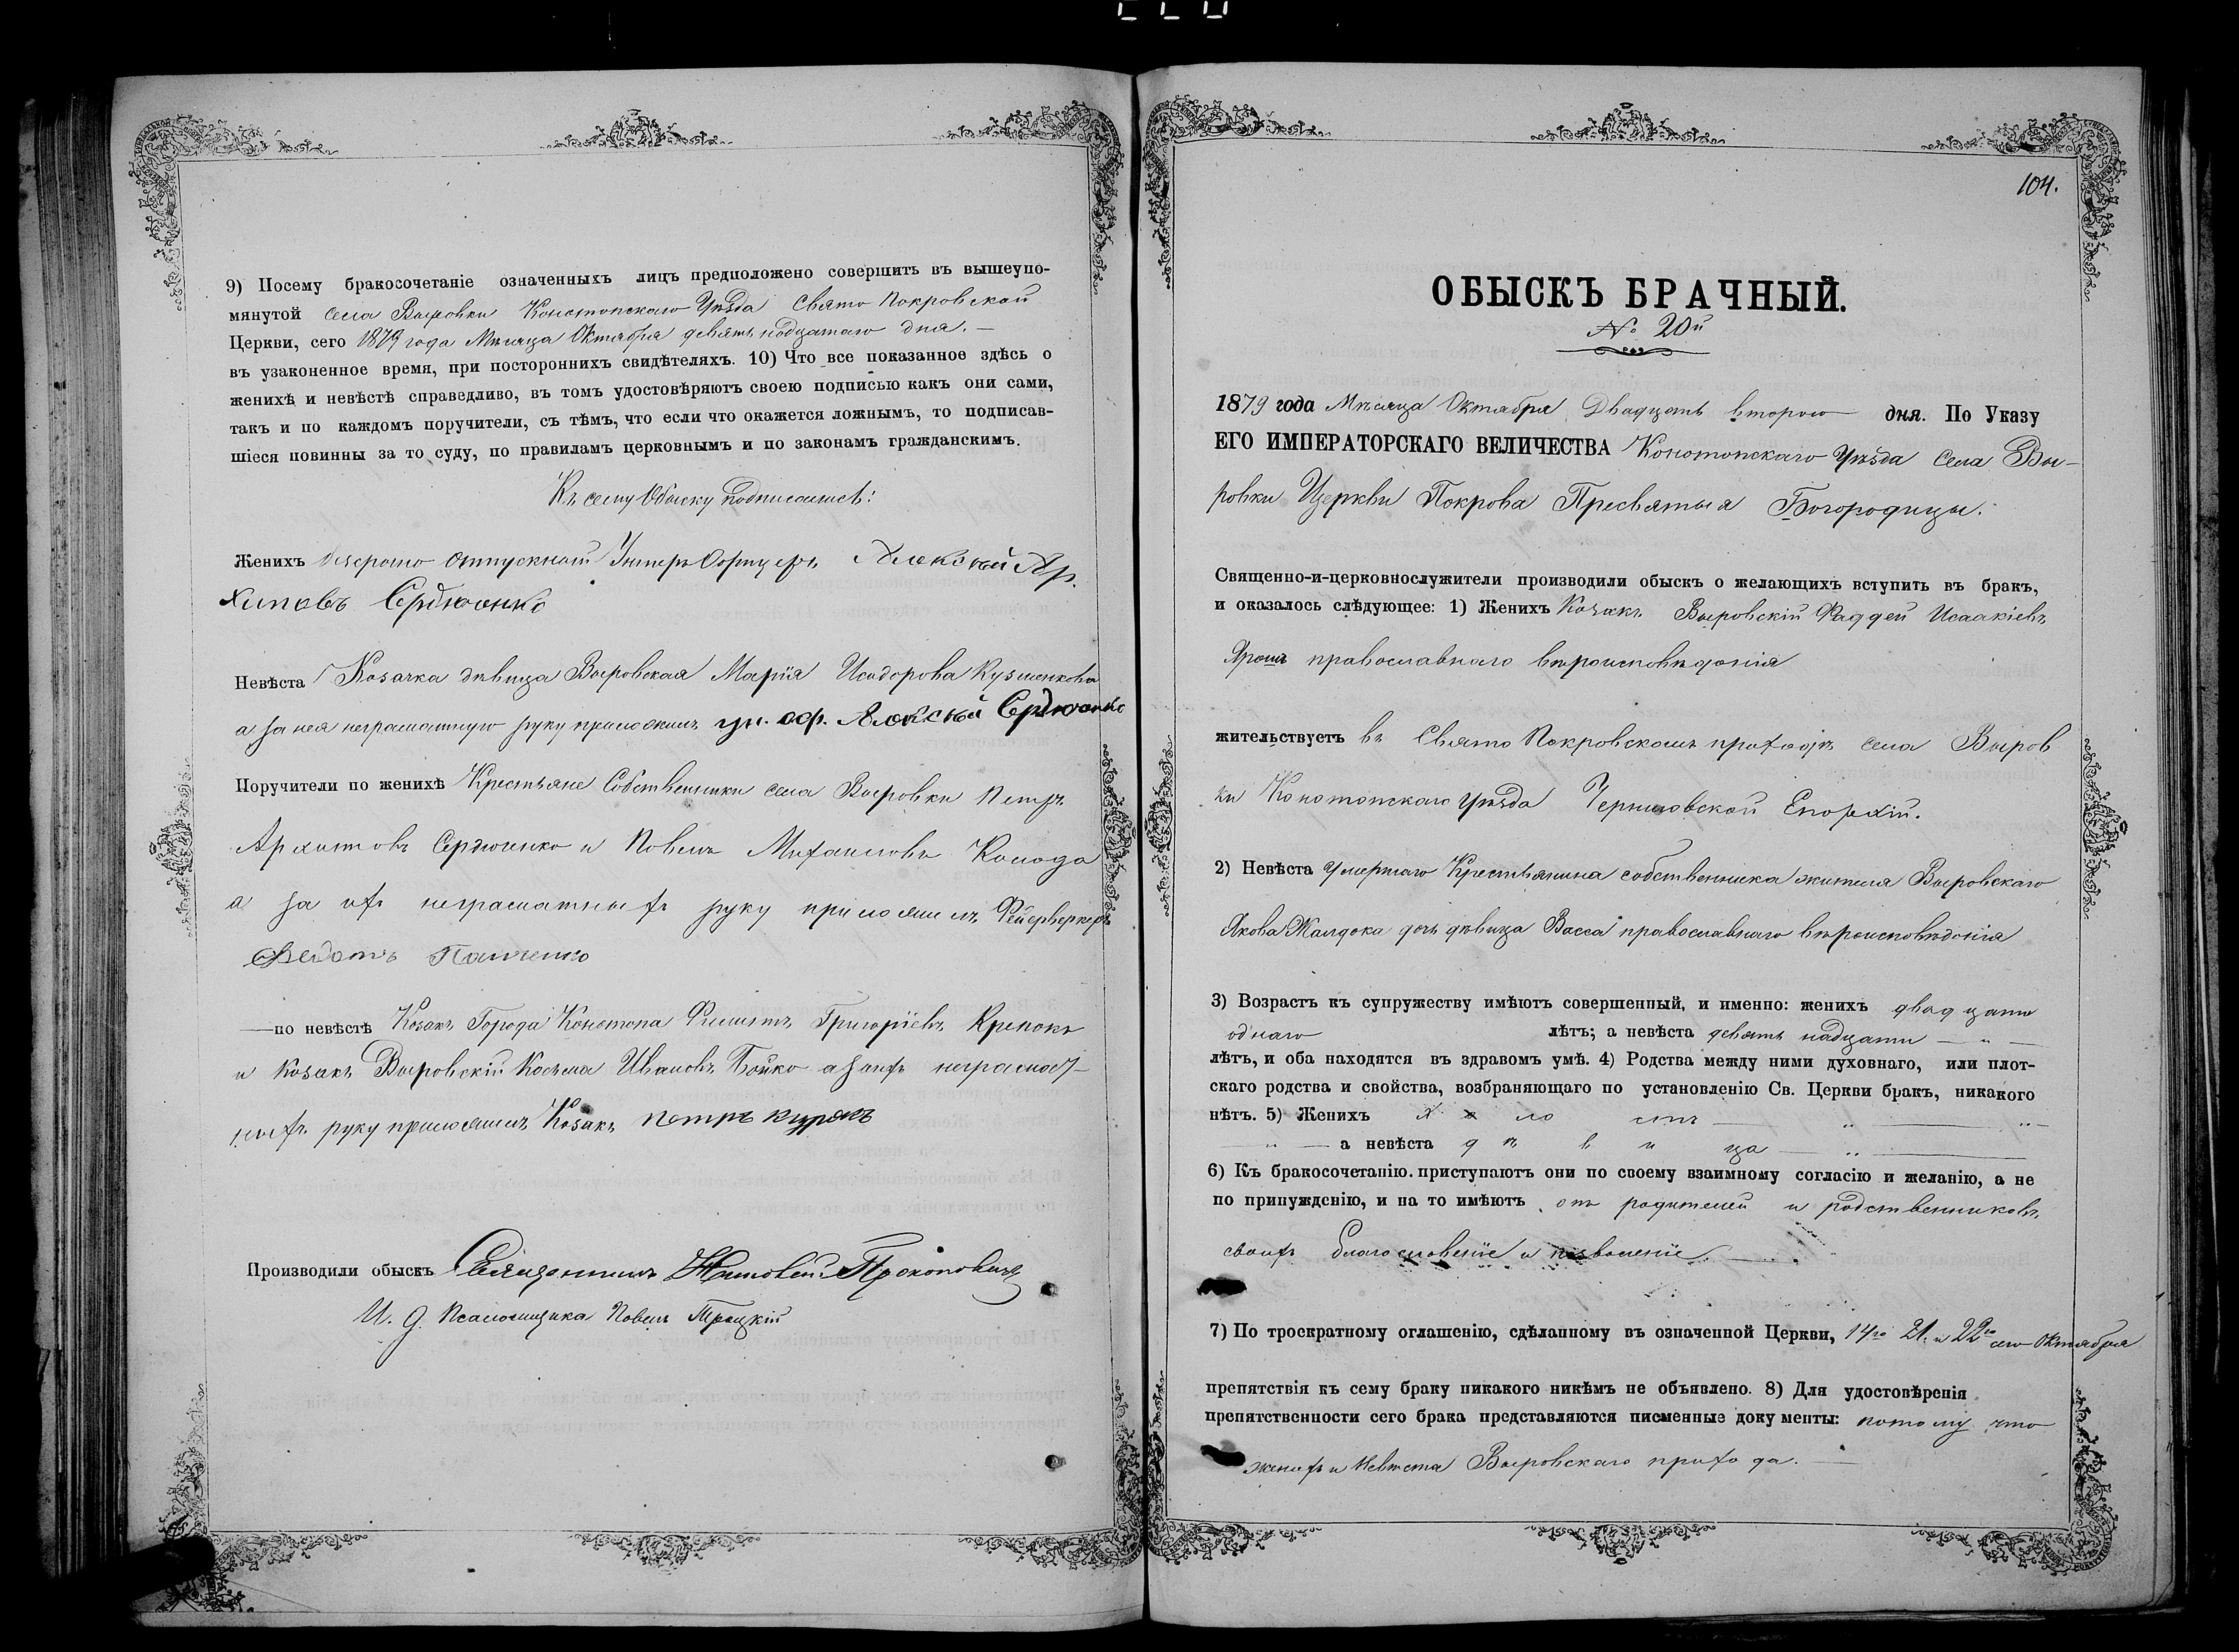 9) Посему бракосочетаніе означенныхъ лицъ предположено совершить въ вышеупо-
мянутой села Выровки Конотопскаго Уѣзда Свято Покровской
Церкви, сего 1879 года Мѣсяца Октября девятьнадцатаго дня. —
въ узаконенное время, при постороннихъ свидѣтеляхъ. 10) Что все показанное здѣсь о
женихѣ и невѣстѣ справедливо, въ томъ удостовѣряютъ своею подписью какъ они сами,
такъ и по каждомъ поручители, съ тѣмъ, что если что окажется ложнымъ, то подписав-
шіеся повинны за то суду, по правиламъ церковнымъ и по законамъ гражданскимъ.
Къ сему Обыску подписались:
Женихъ отпускной Унтеръ Офицеръ Алексѣй Ар.
хиповъ Сердюченко
Невѣста Козачка дѣвица Выровская Марія Исидорова Кузменкова
а за нея неграматную руку приложилъ ун. оф. Алексѣй
Поручители по женихѣ Крестьяне Собственники села Выровки Петръ
Архиповъ и Павелъ Михаиловъ Колода
а за ихъ неграматныхъ руку приложилъ Фейерверкеръ
Федотъ Панченко
—по невѣстѣ Козакъ Города Конотопа Филиппъ Григоріевъ Крепокъ
и Козакъ Выровскій Косьма Ивановъ Бойко а за ихъ неграмот-
ныхъ руку приложилъ Козакъ Петръ Курякъ
Производили обыскъ Священникъ Прокоповичъ
И. д. Псаломщика Павелъ Троцкій
104.
ОБЫСКЪ БРАЧНЫЙ.
№ 20й
1879 года Мѣсяца Октября Двадцать второго дня. По Указу
ЕГО ИМПЕРАТОРСКАГО ВЕЛИЧЕСТВА Конотопскаго Уѣзда села Вы-
ровки Церкви Покрова Пресвятыя Богородицы.
Священно-и-церковнослужители производили обыскъ о желающихъ вступить въ бракъ,
и оказалось слѣдующее: 1) Женихъ Козакъ Выровскій Фаддей Исаакіевъ
Ярошъ православнаго вѣроисповѣданія
жительствуетъ въ Свято Покровскомъ приходѣ села Выров
ки Конотопскаго Уѣзда Черниговской Епархіи.
2) Невѣста умершаго Крестьянина собственника жителя Выровскаго
Якова дочь дѣвица Васса православнаго вѣроисповѣданія
3) Возрастъ къ супружеству имѣютъ совершенный, и именно: женихъ двадцати
однаго лѣтъ; а невѣста девятьнадцати — „ —
лѣтъ, и оба находятся въ здравомъ умѣ. 4) Родства между ними духовнаго, или плот-
скаго родства и свойства, возбраняющаго по установленію Св. Церкви бракъ, никакого
нѣтъ. 5) Женихъ х о ло стъ — „ — „ —
— „ — а невѣста д ѣ в и ца — „ —
6) Къ бракосочетанію приступаютъ они по своему взаимному согласію и желанію, а не
по принужденію, и на то имѣютъ отъ родителей и родственниковъ
своихъ благословеніе и позволеніе.
7) По троекратному оглашенію, сдѣланному въ означенной Церкви, 14го 21. и 22го сего Октября
препятствія къ сему браку никакого никѣмъ не объявлено. 8) Для удостовѣренія
препятственности сего брака представляются писменные документы: потому что
женихъ и невѣста Выровскаго прихода. —